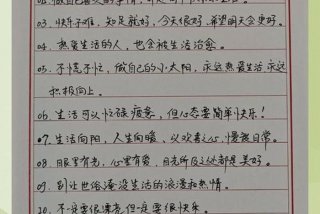 02. 做自己喜欢的事情,
03. 快乐不难,知足就好,今天很好,希望明天会更好。
04. 热爱生活的人,也会被生活治愈。
05. 不慌不忙,做自己的小太阳,永远热爱生活永远
积极向上。
06. 生活可以忙碌疲惫,但心态要简单快乐!
07. 生活向阳,人生向暖,以欢喜之心,慢度日常。
08. 眼里有光,心里有爱,目光所及之处都是美好。
09. 别让世俗淹没生活的浪漫和热情。
10. 不一定要很漂亮但一定要很快乐。